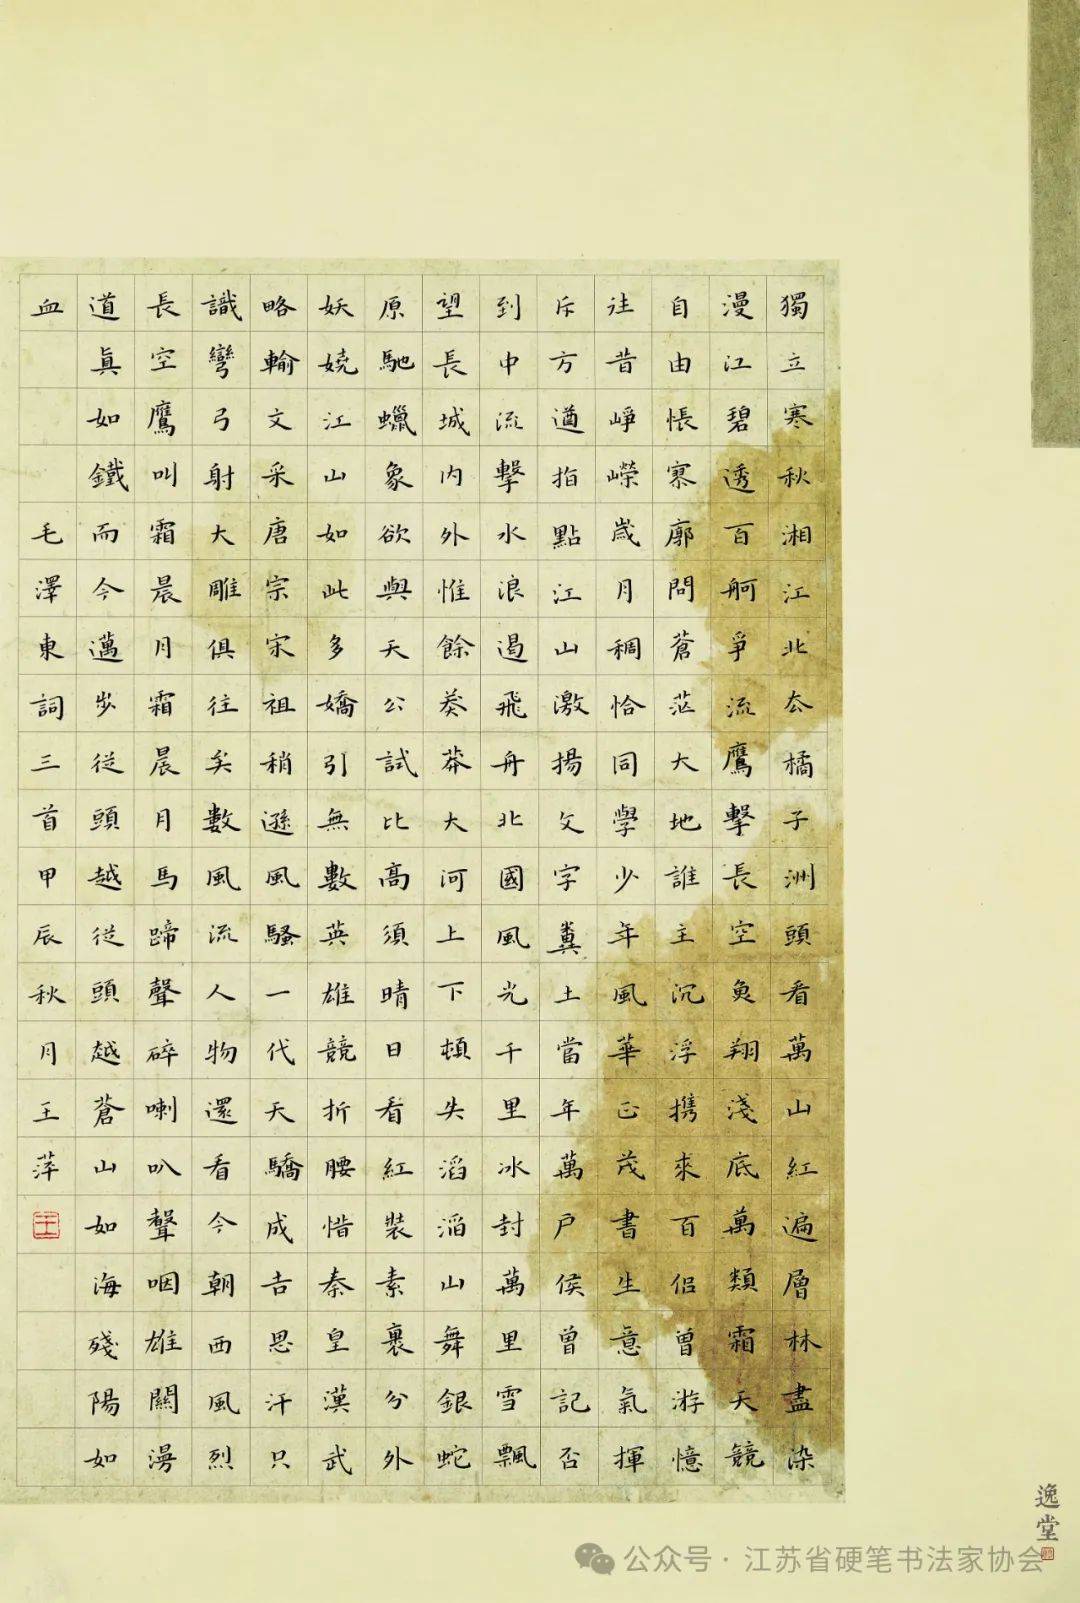 獨立寒秋湘江北去橘子洲頭看萬山紅遍層林盡染
漫江碧透百舸爭流鷹擊長空魚翔淺底萬類霜天競
自由悵寥廓問蒼茫大地誰主沉浮携來百侣曾游憶
往昔崢嶸歲月稠恰同學少年風華正茂書生意氣揮
斥方遒指點江山激揚文字糞土當年萬户侯曾記否
到中流擊水浪遏飛舟北國風光千里冰封萬里雪飄
望長城内外惟餘莽莽大河上下頓失滔滔山舞銀蛇
原馳蠟象欲與天公試比高須晴日看紅裝素裹分外
妖嬈江山如此多嬌引無數英雄競折腰惜秦皇漢武
略輸文采唐宗宋祖稍遜風騷一代天驕成吉思汗只
識彎弓射大雕俱往矣數風流人物還看今朝西風烈
長空鷹叫霜晨月霜晨月馬蹄聲碎喇叭聲咽雄關漫
道眞如鐵而今邁步從頭越從頭越蒼山如海殘陽如
血 毛澤東詞三首甲辰秋月王萍
王
逸堂
公众号·江苏省硬笔书法家协会